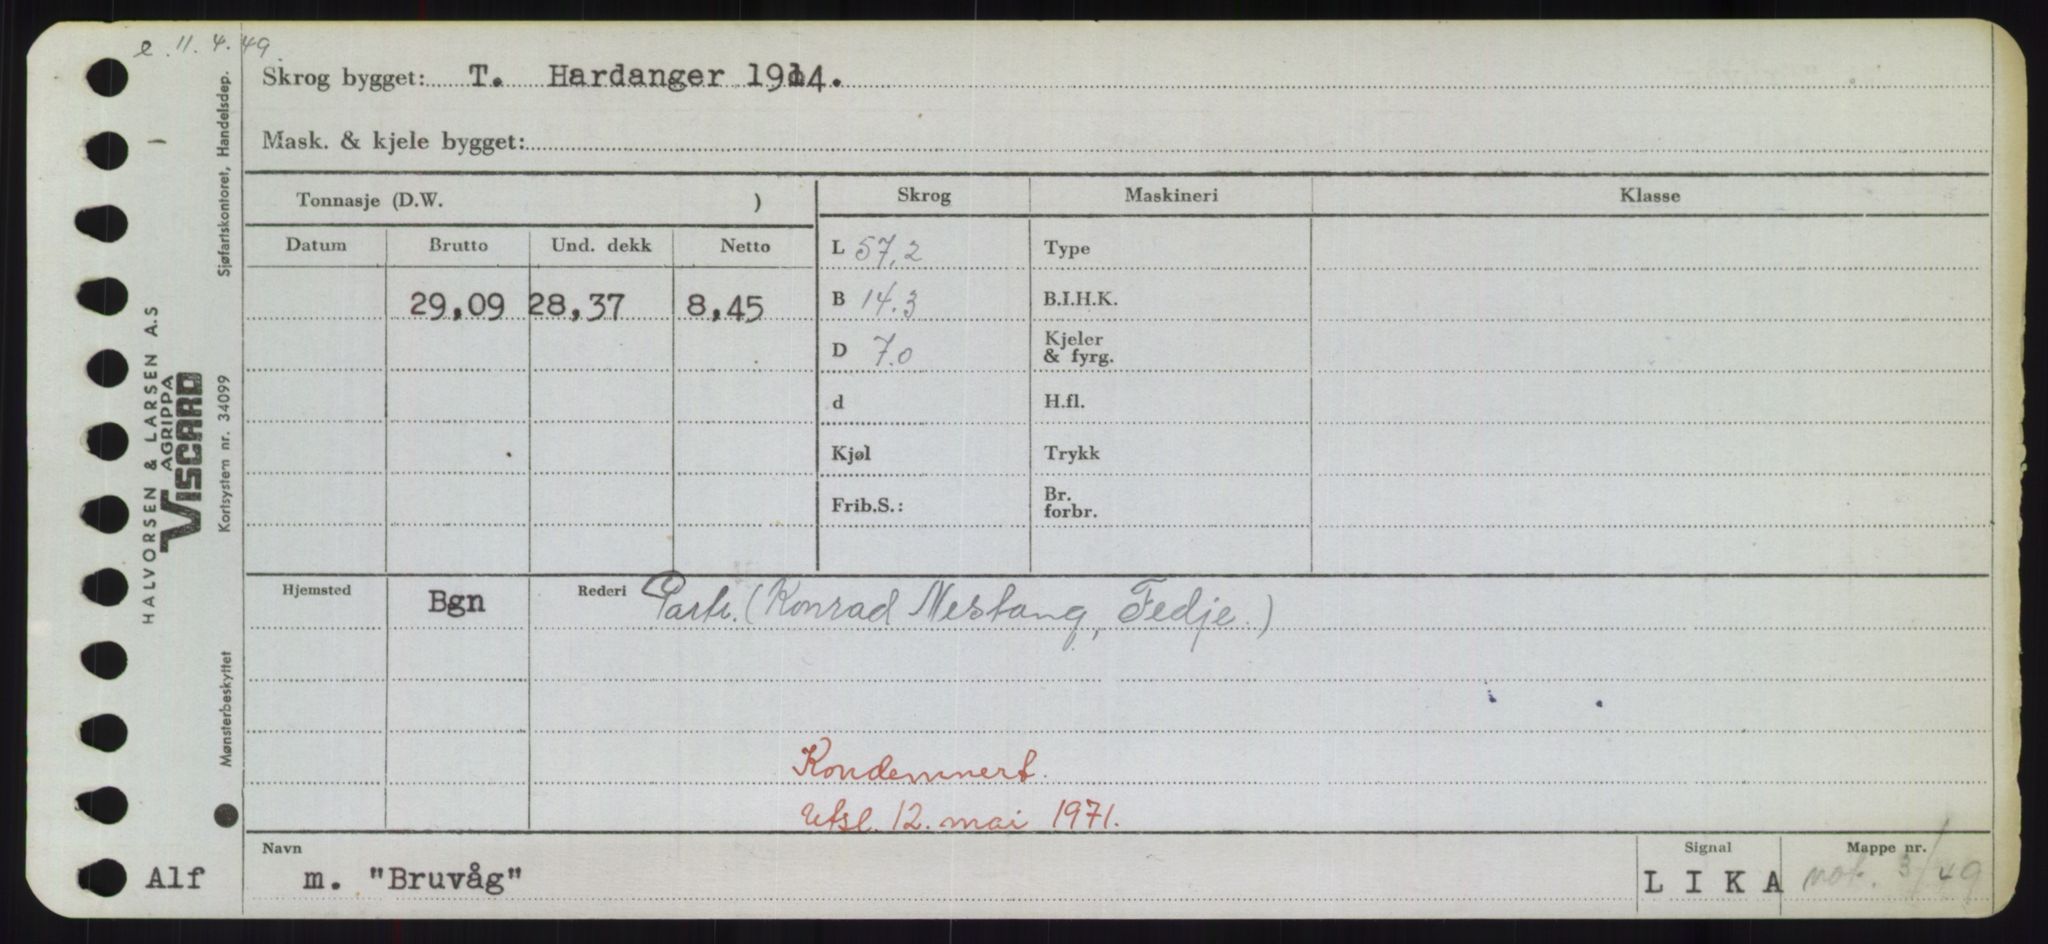 e. 11. 4. 49
Skrog bygget: T. Hardanger 1914.
Mask. & kjele bygget:
Tonnasje (D.W. )
Skrog Maskineri Klasse
Datum Brutto Und. dekk Netto
L 57,2 Type
29,09 28,37 8,45
B 14.3 B.I.H.K.
D 7.0 Kjeler
& fyrg.
d H.fl.
Kjøl Trykk
Frib.S.: Br.
forbr.
Hjemsted Bgn Rederi Partr. (Konrad Nestang, Fedje.)
Kondemnert.
Utsl. 12. mai 1971.
Navn Signal Mappe nr.
Alf m. "Bruvåg" L I K A not. 3/49
HALVORSEN & LARSEN A.S
AGRIPPA
VISCARD
Sjøfartskontoret, Handelsdep.
Kortsystem nr. 34099
Mønsterbeskyttet